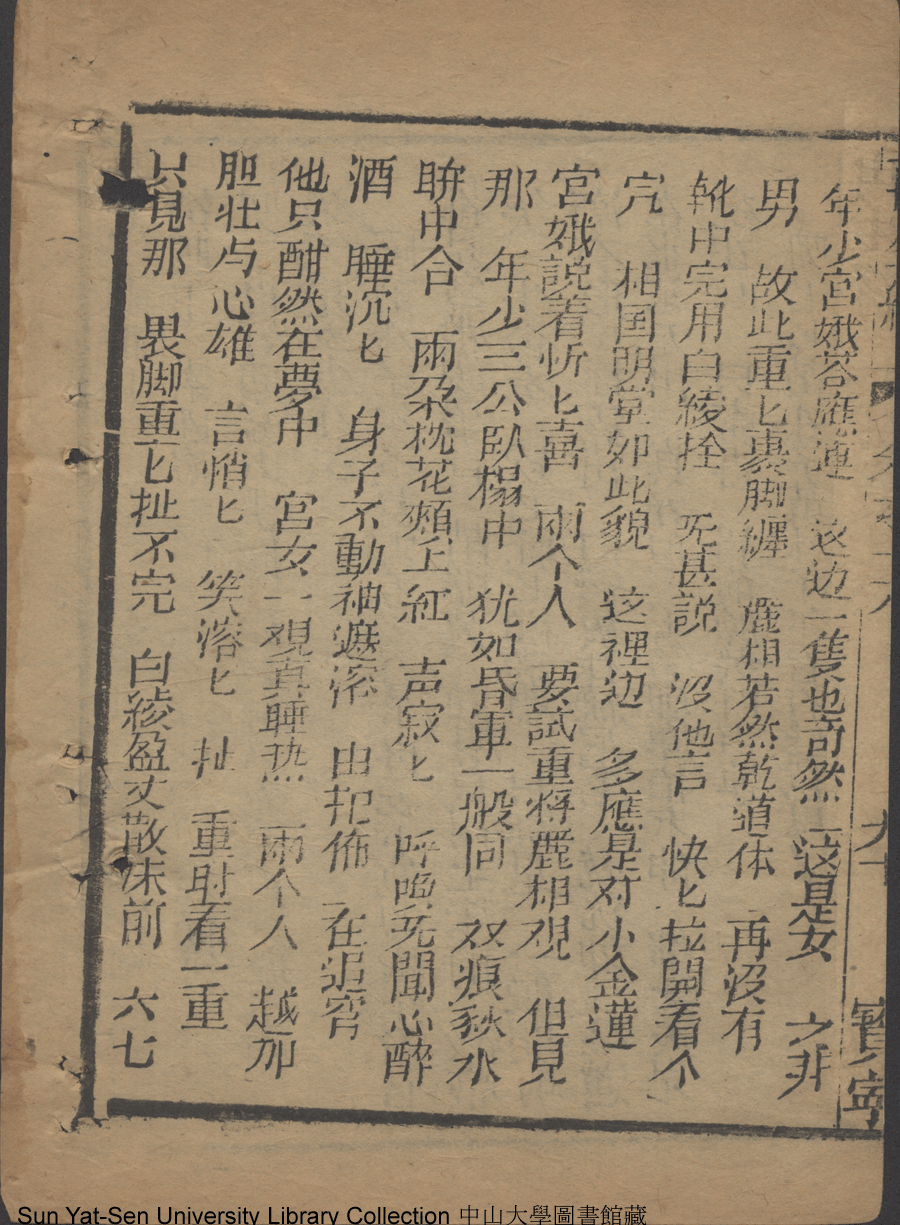 年少宮娥荅應連　这边一隻也奇然　這是女　之非
男　故此重匕裹脚纏　麗相若然乾道体　再没有
靴中完用白綾拴　旡甚説　没他言　快匕拉開看个
完　相国明堂如此貌　这裡边　多應是对小金蓮
宮娥説着忻匕喜　兩个人　要試重将麗相观　但見
那　年少三公臥榻中　犹如昏軍一般同　双痕秋水
眸中合　兩朶枕花頰上紅　声寂匕　呼喚旡聞心醉
酒　睡沉匕　身子不動袖遮　由扯　在追
他只酣然在夢中　宮女一观真睡热　兩个人　越加
胆壮与心雄　言悄匕　笑溶匕　扯　重时看一重
只見那　裹脚重匕扯不完　白綾盈丈散床前　六七
寳寧
Sun Yat-Sen University Library Collection 中山大學圖書館藏